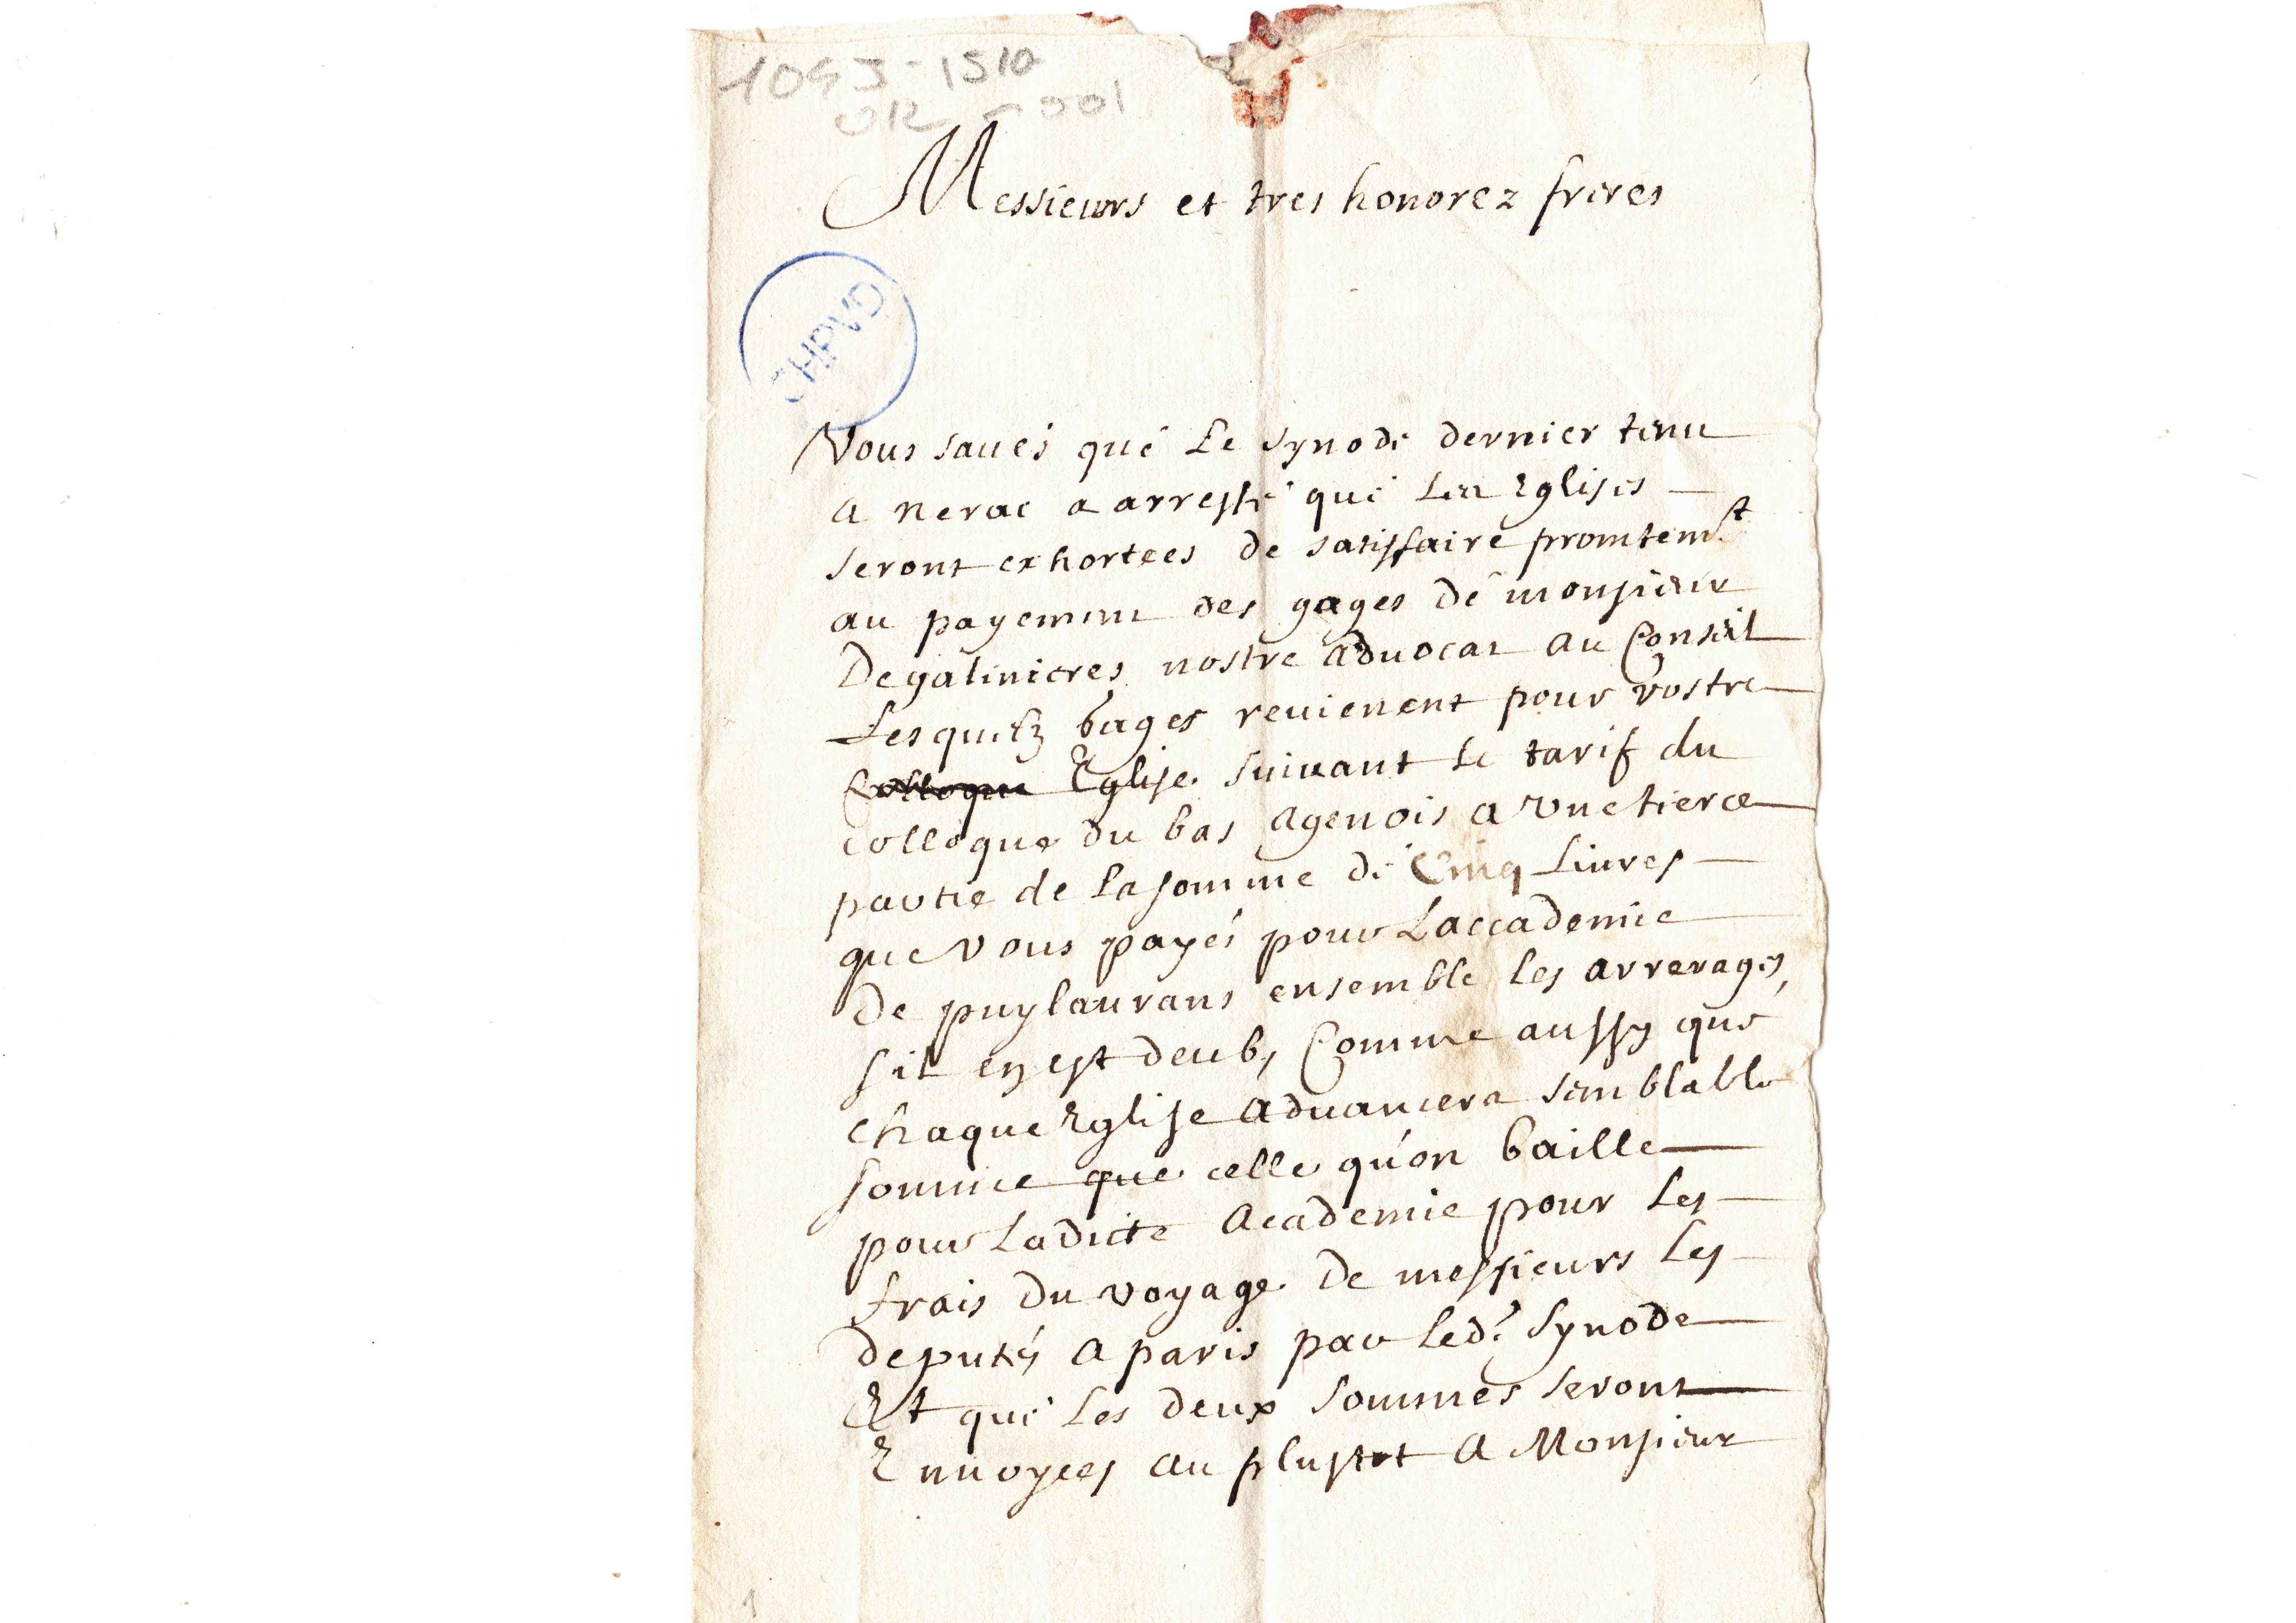 1093-1510
012-001
Messieurs et tres honorez freres
CHPVG
Vous saués que Le synode dernier tenu
a nerac a arresté que Les Eglises
seront exhortees de satisfaire promtemt
au payement des gages de monsieur
Degalinieres nostre aduocat au Conseil
Lesquelz gages reuienent pour vostre
Colloque Eglise suiuant le tarif du
colloque du bas agenois a vne tierce
partie de la somme de Cinq Liures
que vous payés pour Laccademie
de puylaurans ensemble les arrerages,
sil en est deub, Comme aussy que
chaque Eglise aduancera semblable
somme que celle qu'on baille
pour Ladicte academie pour les
frais du voyage de messieurs les
deputés a paris par led. synode
Et que les deux sommes seront
Enuoyees au plustot a Monsieur
1